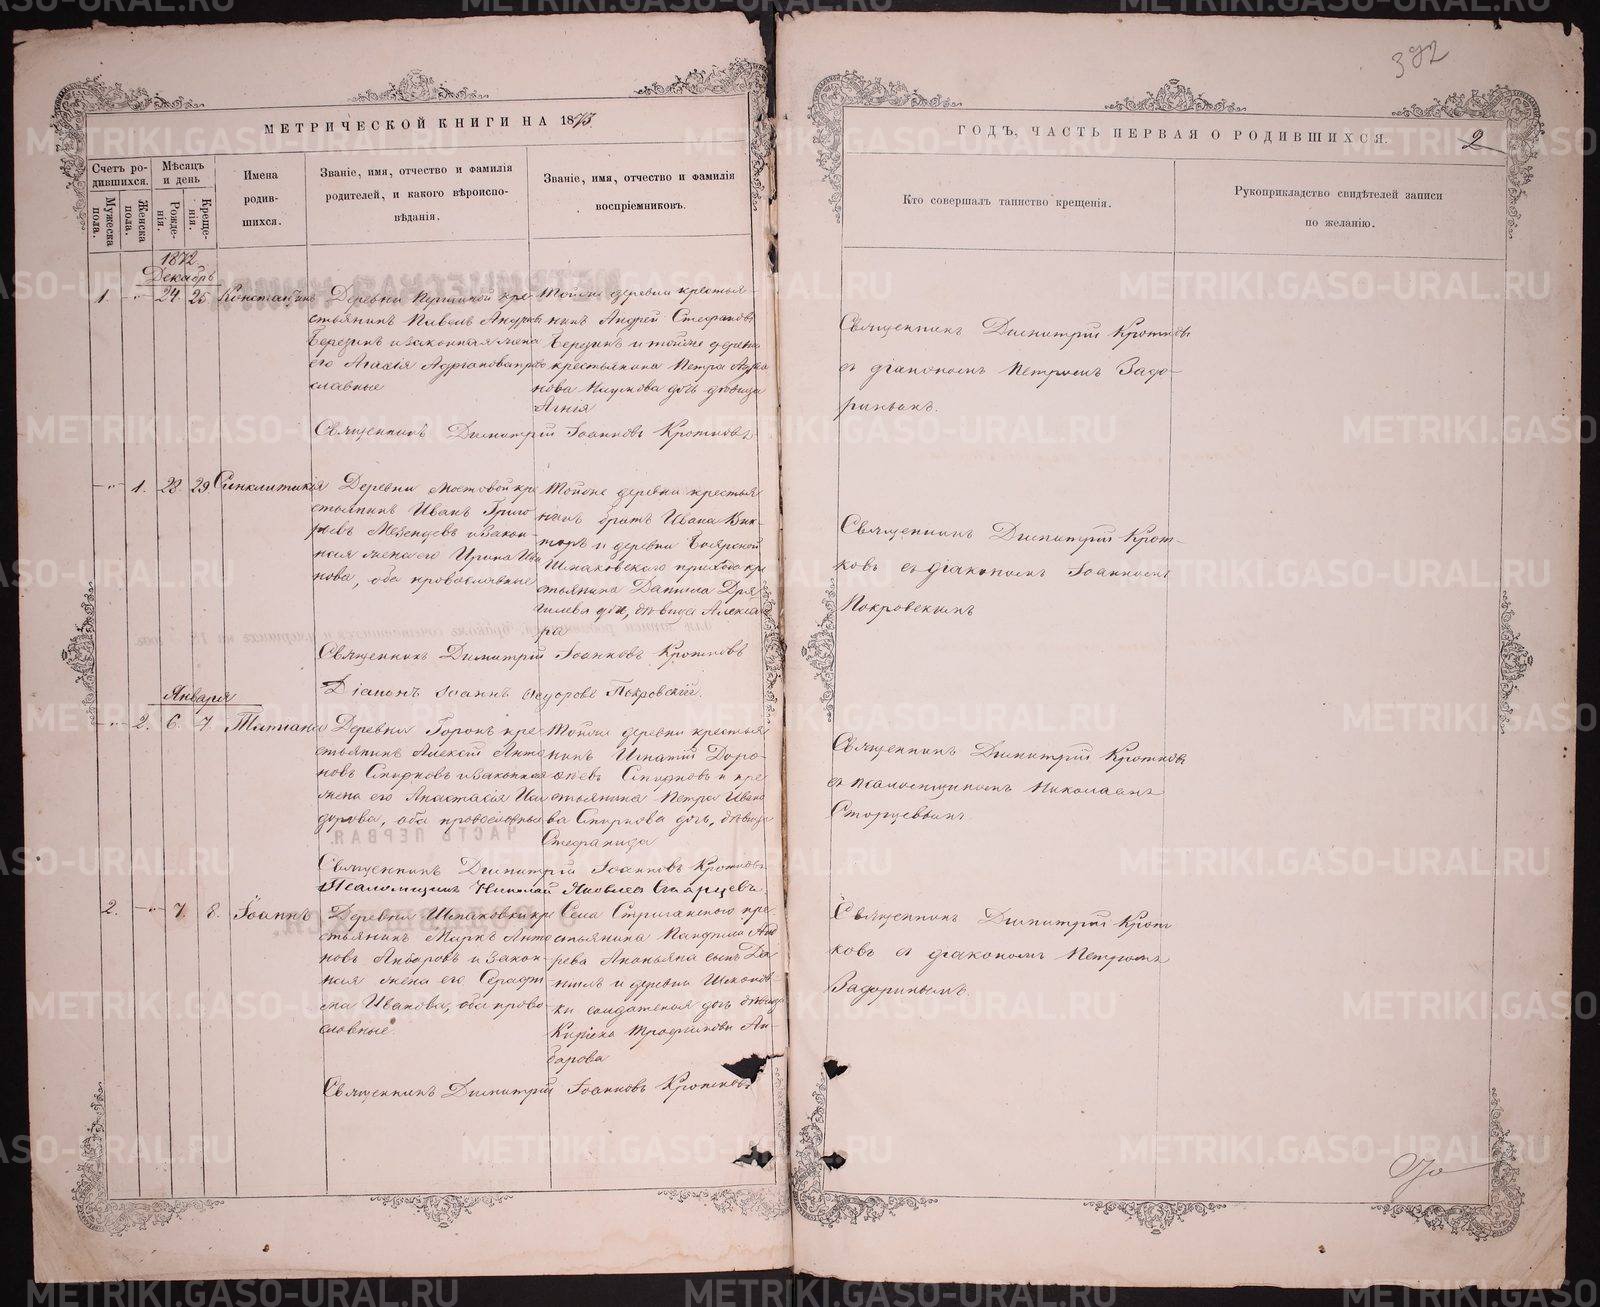 392
МЕТРИЧЕСКОЙ КНИГИ НА 1873
ГОДЪ, ЧАСТЬ ПЕРВАЯ О РОДИВШИХСЯ.
2
Счетъ ро-
дившихся.
Мужеска
пола.
Женска
пола.
Мѣсяцъ
и день
Рожде-
нія.
Креще-
нія.
Имена
родив-
шихся.
Званіе, имя, отчество и фамилія
родителей, и какого вѣроиспо-
вѣданія.
Званіе, имя, отчество и фамилія
воспріемниковъ.
Кто совершалъ таинство крещенія.
Рукоприкладство свидѣтелей записи
по желанію.
1872
Декабрь
1. 24. 25. Константинъ
Деревни кре-
стьянинъ Павелъ Андреевъ
Березинъ и законная жена
его Агапія Адріанова пра-
славные
Тойже деревни крестья-
нинъ Андрей Стефановъ
Березинъ и тойже деревни
крестьянина Петра
дочь дѣвица
Агнія
Священникъ Димитрій Кротковъ
съ діакономъ Петромъ Задо-
ринымъ.
Священникъ Димитрій Іоанновъ Кротковъ
1. 28. 29. Синклитикія
Деревни Мостовой кре
стьянинъ Иванъ Григо
рьевъ Мезенцевъ и закон-
ная жена его Ирина Ива
нова, оба православные
Тойже деревни крестья
нинъ братъ Ивана Вик-
торъ и деревни Боярской
Шмаковскаго прихода кре
стьянина Даніила Дря
гилева дочь, дѣвица Алексан
ра
Священникъ Димитрій Крот-
ковъ съ діакономъ Іоанномъ
Покровскимъ
Священникъ Димитрій Іоанновъ Кротковъ
Діаконъ Іоаннъ Ѳедоровъ Покровскій.
Января
2. 6. 7 Татіана
Деревни Горокъ кре
стьянинъ Алексій Анто
новъ Смирновъ и законная
жена его Анастасія Иси
дорова, оба православные
Тойже деревни крестья
нинъ Игнатій Доро-
ѳеевъ Смирновъ и кре
стьянина Петра Ивано
ва Смирнова дочь, дѣвица
Стефанида
Священникъ Димитрій Кротковъ
съ псаломщикомъ Николаемъ
Старцевымъ
Священникъ Димитрій Іоанновъ Кротковъ
Псаломщикъ Николай Яковлевъ Старцевъ.
2. 7. 8. Іоаннъ
Деревни Шмаковки кре
стьянинъ Маркъ Анто
новъ Анбаровъ и закон-
ная жена его Серафи
ма Иванова, оба право-
славные.
Села Стриганскаго кре-
стьянина Панфила Анд
рева Ананьина сынъ Да
нилъ и деревни Шмаков-
ки солдатская дочь дѣвица
Кирікія Трофимова Ан-
барова
Священникъ Димитрій Крот
ковъ съ діакономъ Петромъ
Задоринымъ.
Священникъ Димитрій Іоанновъ Кротковъ
METRIKI.GASO-URAL.RU